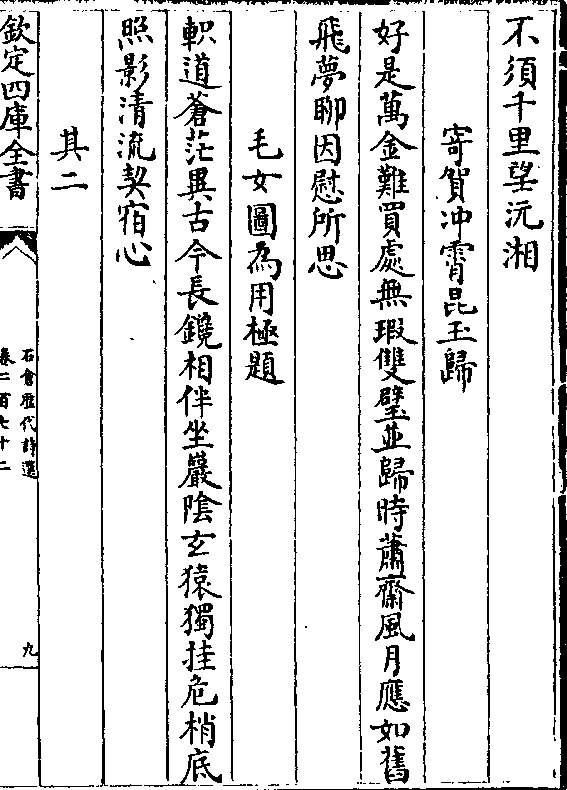 不須千里望沅湘
寄賀冲霄昆玉歸
好是萬金難買處無瑕雙璧並歸時蕭齋風月應如舊
飛夢聊因慰所思
毛女圖為用極題
軹道蒼茫異古今長鑱相伴坐巖陰玄猿獨挂危梢底
照影清流契宿心
其二
欽定四庫全書
石倉歷代詩選
卷二百七十二
九